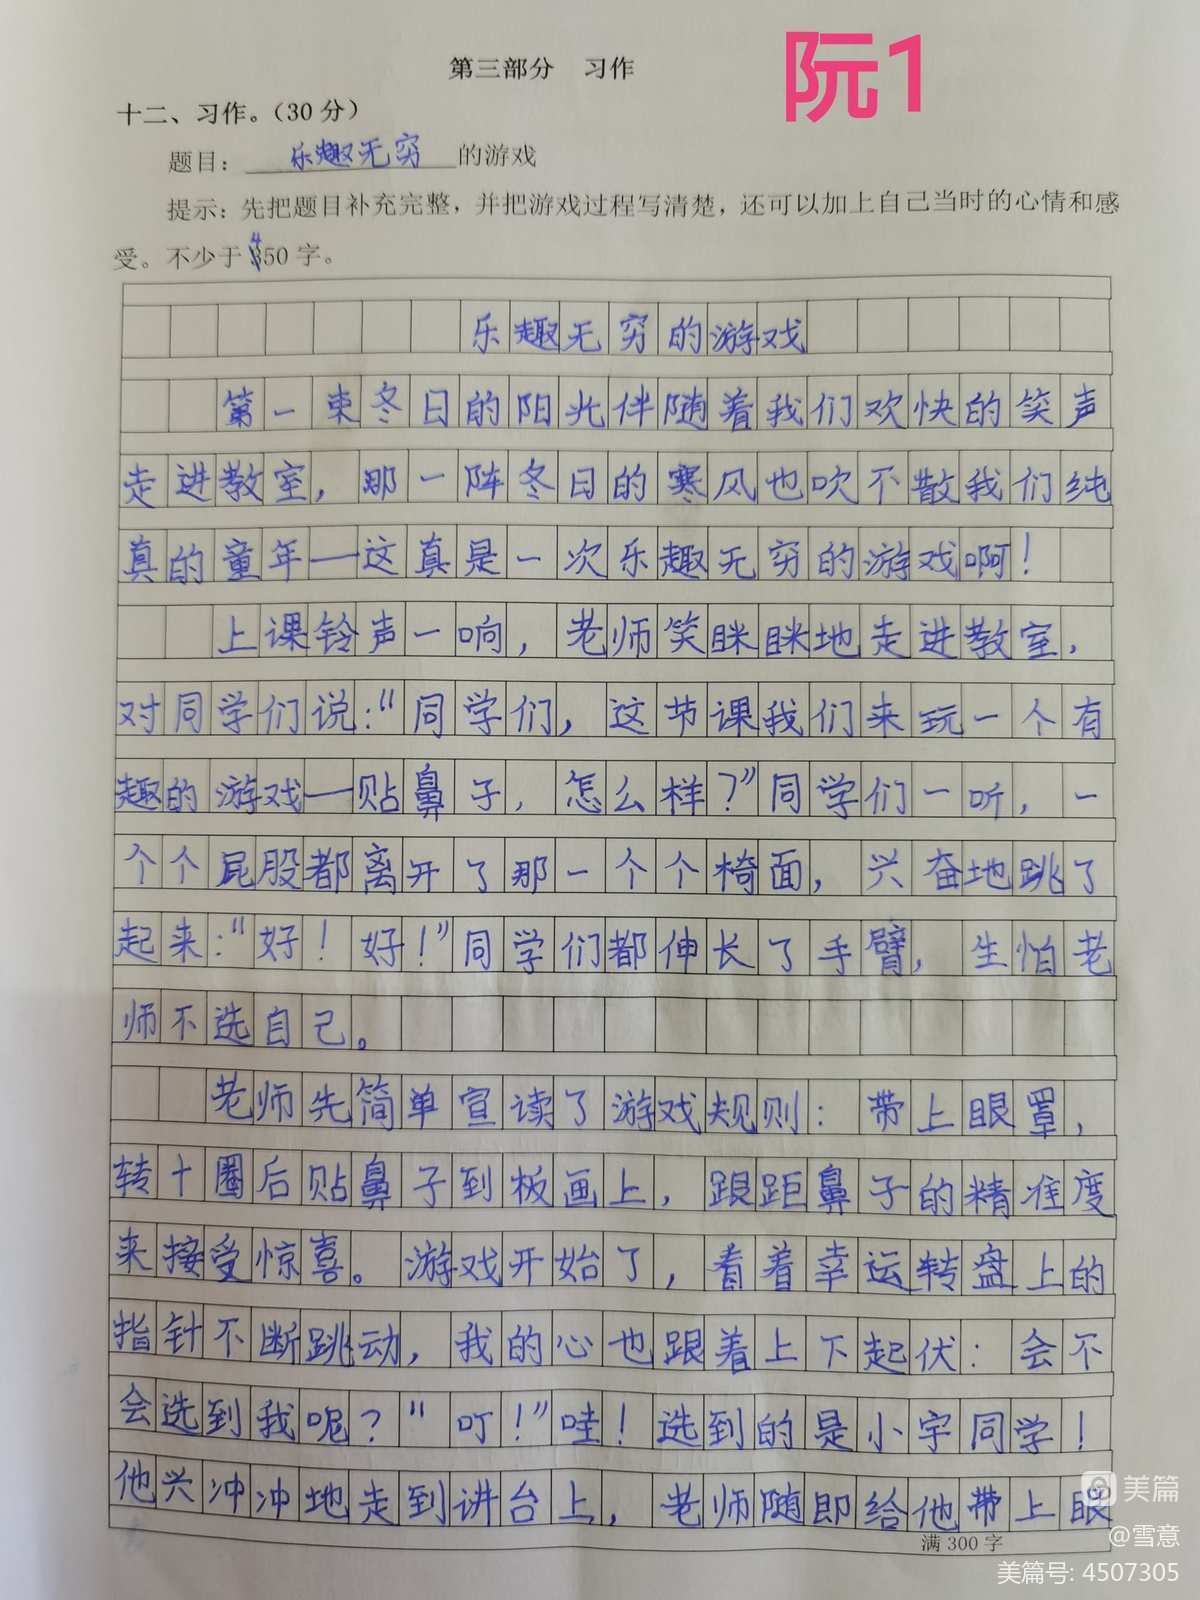 阮1
第三部分 习作
十二、习作。(30分)
题目：乐趣无穷的游戏
提示：先把题目补充完整，并把游戏过程写清楚，还可以加上自己当时的心情和感
受。不少于450字。
乐趣无穷的游戏
第一束冬日的阳光伴随着我们欢快的笑声
走进教室，那一阵冬日的寒风也吹不散我们纯
真的童年——这真是一次乐趣无穷的游戏啊！
上课铃声一响，老师笑眯眯地走进教室，
对同学们说：“同学们，这节课我们来玩一个有
趣的游戏——贴鼻子，怎么样？”同学们一听，一
个个屁股都离开了那一个个椅面，兴奋地跳了
起来：“好！好！”同学们都伸长了手臂，生怕老
师不选自己。
老师先简单宣读了游戏规则：带上眼罩，
转十圈后贴鼻子到板画上，跟距鼻子的精准度
来接受惊喜。游戏开始了，看着幸运转盘上的
指针不断跳动，我的心也跟着上下起伏：会不
会选到我呢？“叮！”哇！选到的是小宇同学！
他兴冲冲地走到讲台上，老师随即给他带上眼
满300字
美篇
@雪意
美篇号: 4507305